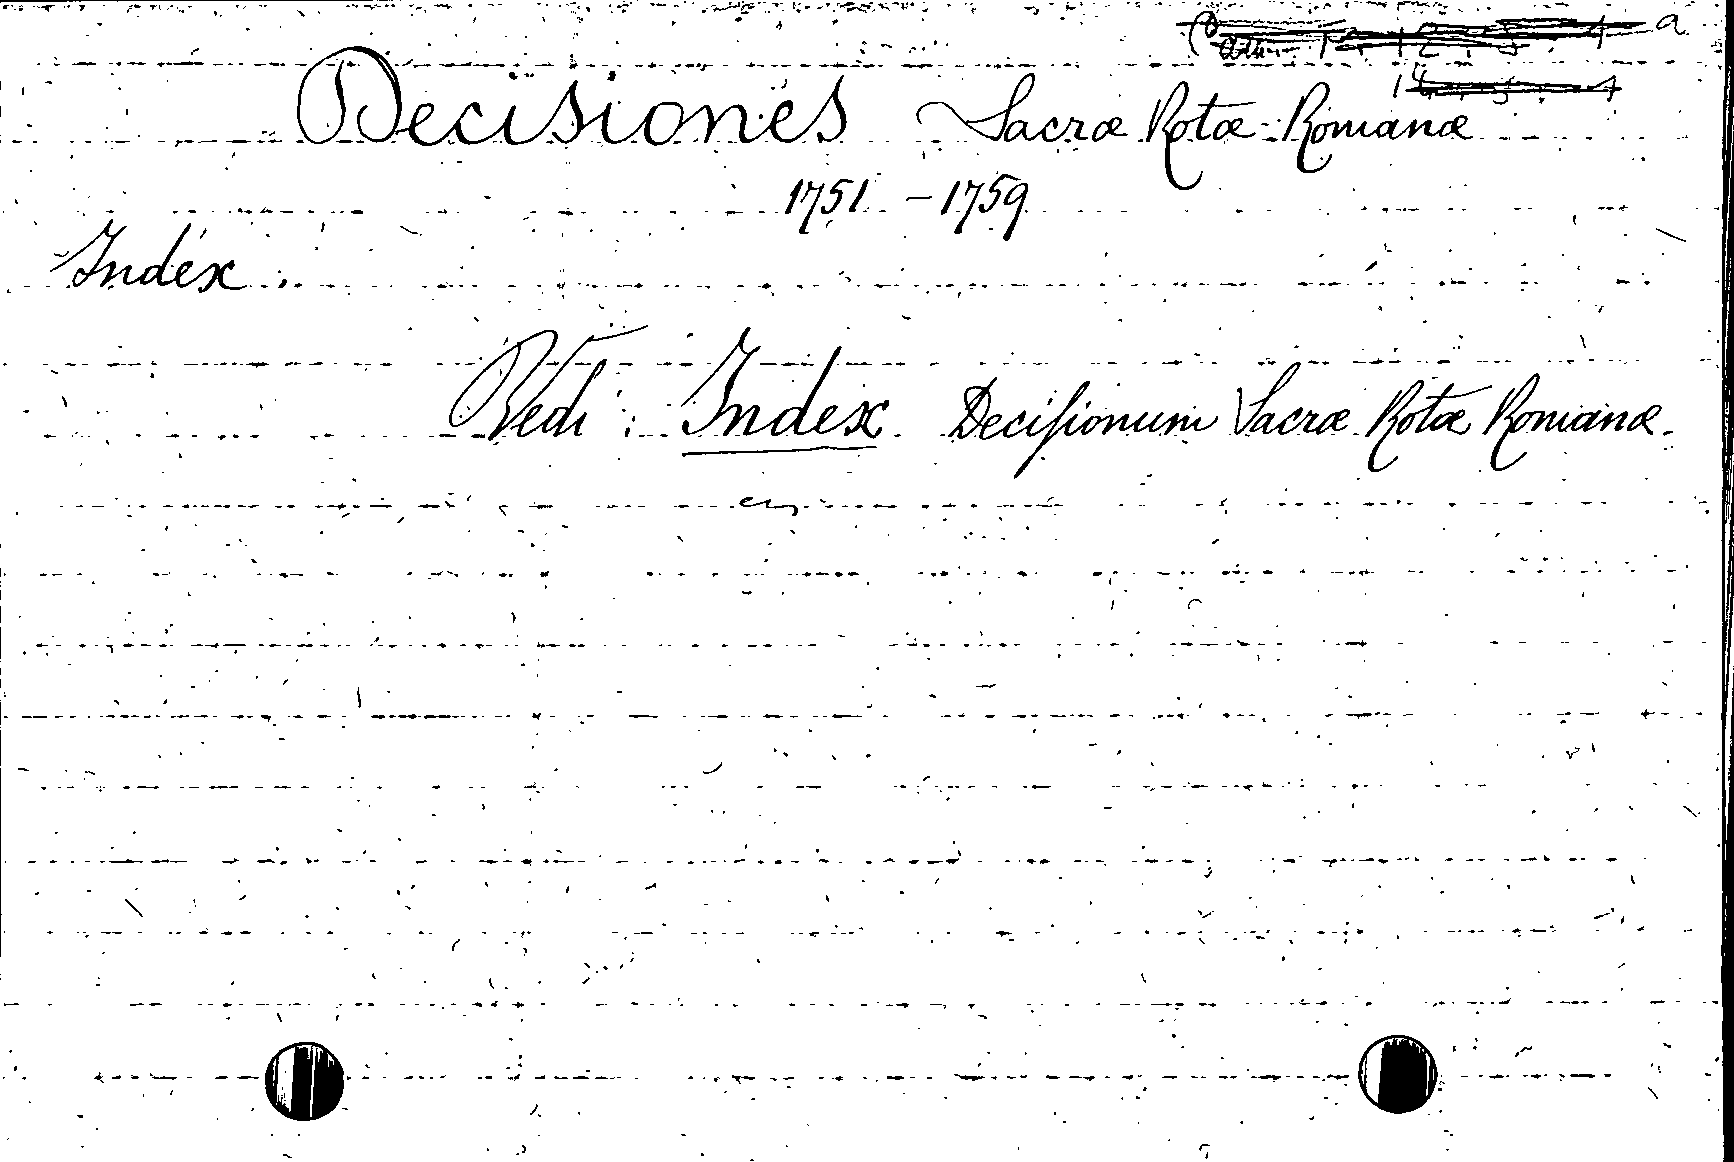 Decisiones Sacræ Rotæ Romanæ
1751 - 1759
Index
Vedi: Index Decisionum Sacræ Rotæ Romanæ.